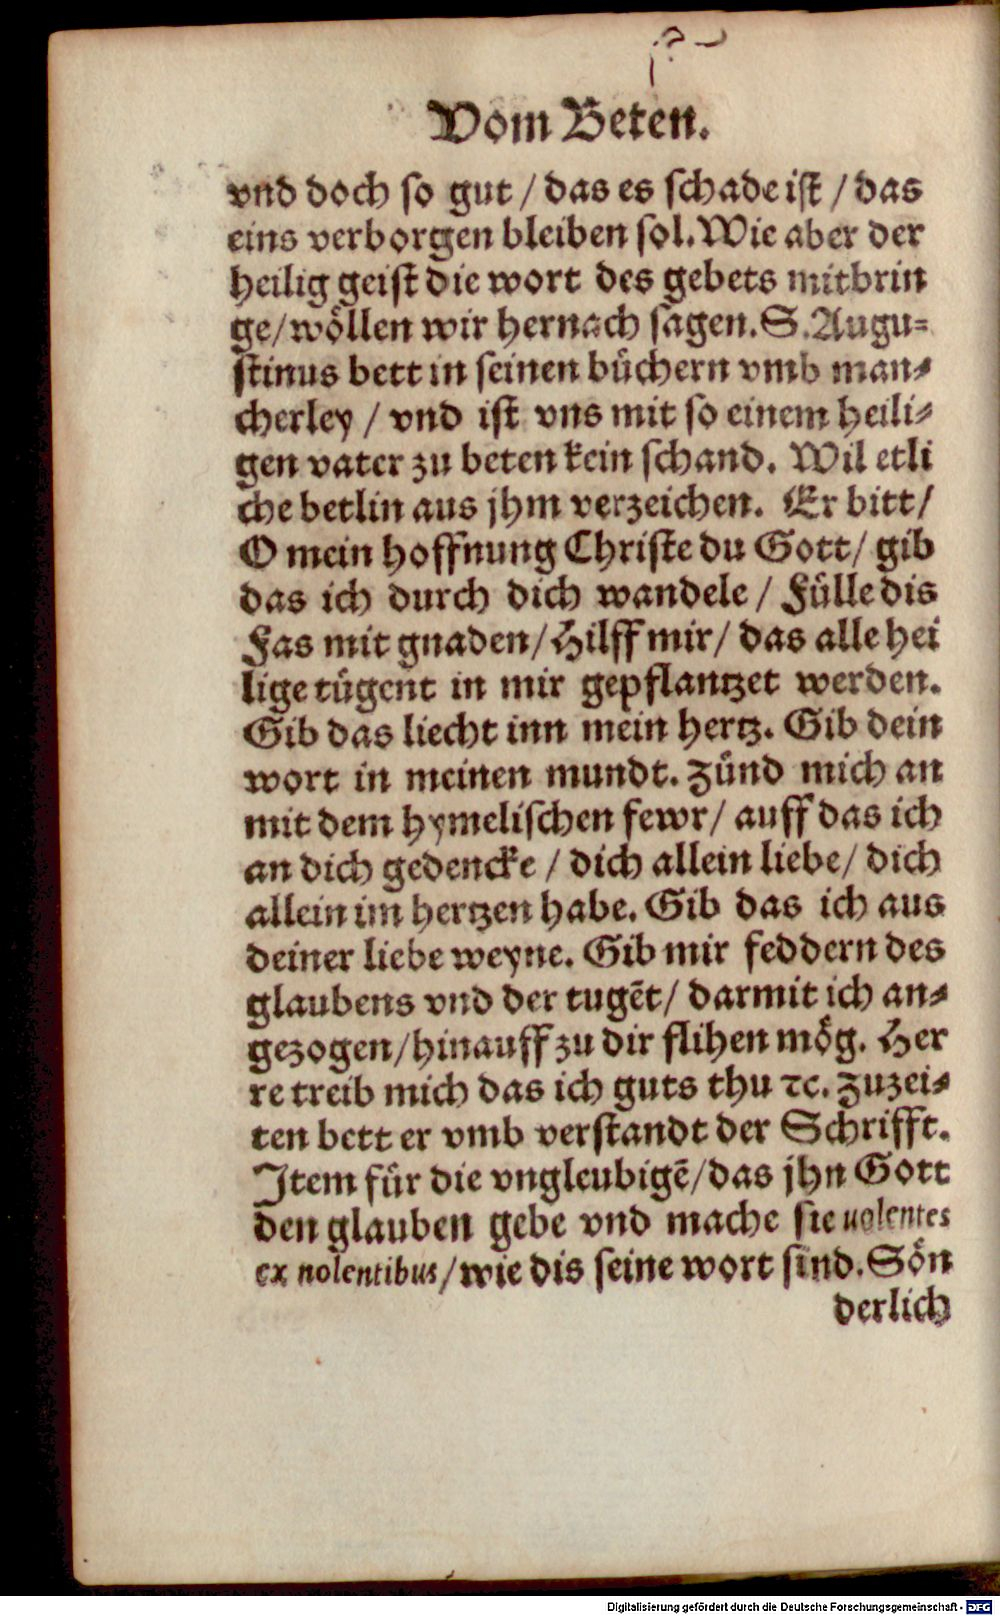 Vom Beten.
vnd doch so gut / das es schade ist / das
eins verborgen bleiben sol. Wie aber der
heilig geist die wort des gebets mitbrin
ge/wöllen wir hernach sagen. S. Augu=
stinus bett in seinen büchern vmb man=
cherley / vnd ist vns mit so einem heili=
gen vater zu beten kein schand. Wil etli
che betlin aus jhm verzeichen. Er bitt/
O mein hoffnung Christe du Gott/ gib
das ich durch dich wandele / Fülle dis
Fas mit gnaden/ Hilff mir/ das alle hei
lige tügent in mir gepflantzet werden.
Gib das liecht inn mein hertz. Gib dein
wort in meinen mundt. Zünd mich an
mit dem hymelischen fewr/ auff das ich
an dich gedencke / dich allein liebe/ dich
allein im hertzen habe. Gib das ich aus
deiner liebe weyne. Gib mir feddern des
glaubens vnd der tugēt/ darmit ich an=
gezogen/hinauff zu dir flihen mög. Her
re treib mich das ich guts thu ꝛc. Zuzei=
ten bett er vmb verstandt der Schrifft.
Item für die vngleubigē/das jhn Gott
den glauben gebe vnd mache sie uolentes
ex nolentibus/wie dis seine wort sind. Sön
derlich
Digitalisierung gefördert durch die Deutsche Forschungsgemeinschaft - DFG